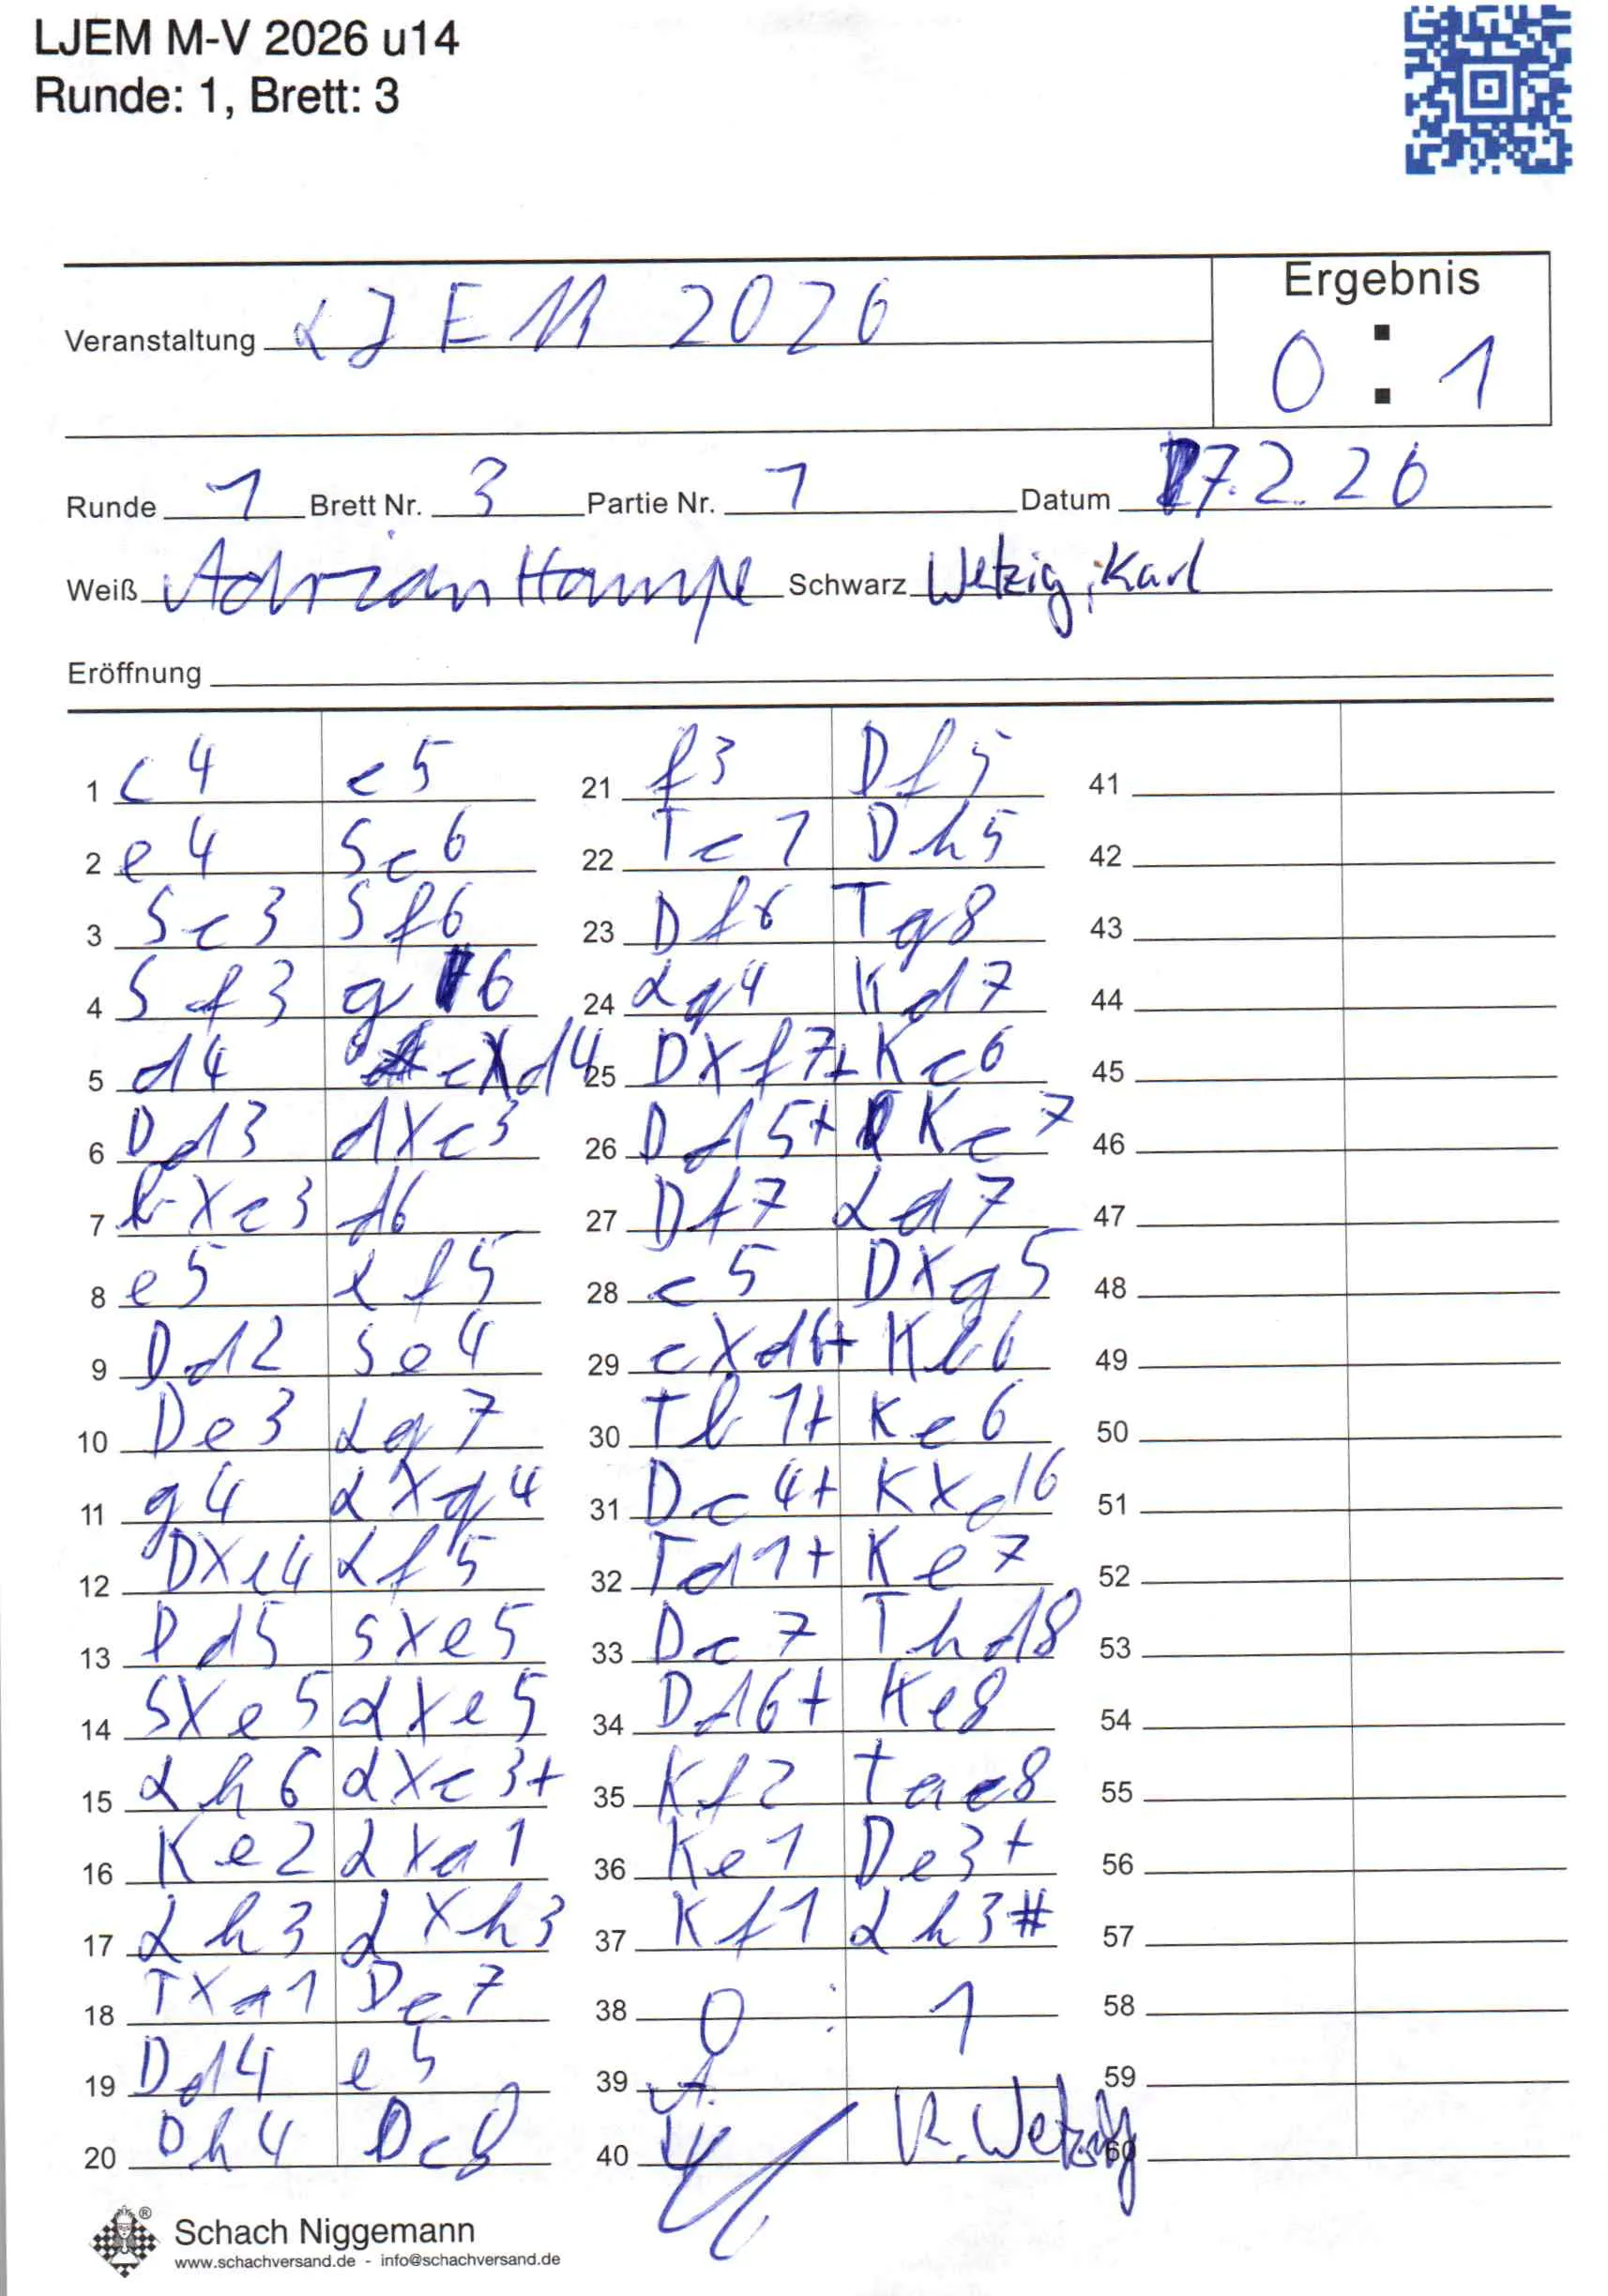 LJEM M-V 2026 u14
Runde: 1, Brett: 3
Ergebnis
Veranstaltung LJEM 2026
0 : 1
Runde 1 Brett Nr. 3 Partie Nr. 1 Datum 17.2.26
Weiß Adrian Hampe Schwarz Wetzig, Karl
Eröffnung
1 c4 c5 21 f3 Df5 41
2 e4 Sc6 22 Tc1 Dh5 42
3 Sc3 Sf6 23 Df6 Tg8 43
4 Sf3 g6 24 Lg4 Kd7 44
5 d4 cXd4 25 DXf7+ Kc6 45
6 Dd3 dXc3 26 Dd5+ Kc7 46
7 bXc3 d6 27 Df7 Ld7 47
8 e5 Lf5 28 c5 DXg5 48
9 Dd2 Se4 29 cXd6+ Kb6 49
10 De3 Lg7 30 Tb1+ Kc6 50
11 g4 LXg4 31 Dc4+ KXd6 51
12 DXe4 Lf5 32 Td1+ Ke7 52
13 Dd5 SXe5 33 Dc7 Thd8 53
14 SXe5 LXe5 34 Dd6+ Ke8 54
15 Lh6 LXc3+ 35 Kf2 Tac8 55
16 Ke2 LXa1 36 Ke1 De3+ 56
17 Lh3 LXh3 37 Kf1 Lh3# 57
18 TXa1 Dc7 38 0 : 1 58
19 Dd4 e5 39 59
20 Dh4 Dc8 40 K. Wetzig 60
Schach Niggemann
www.schachversand.de - info@schachversand.de